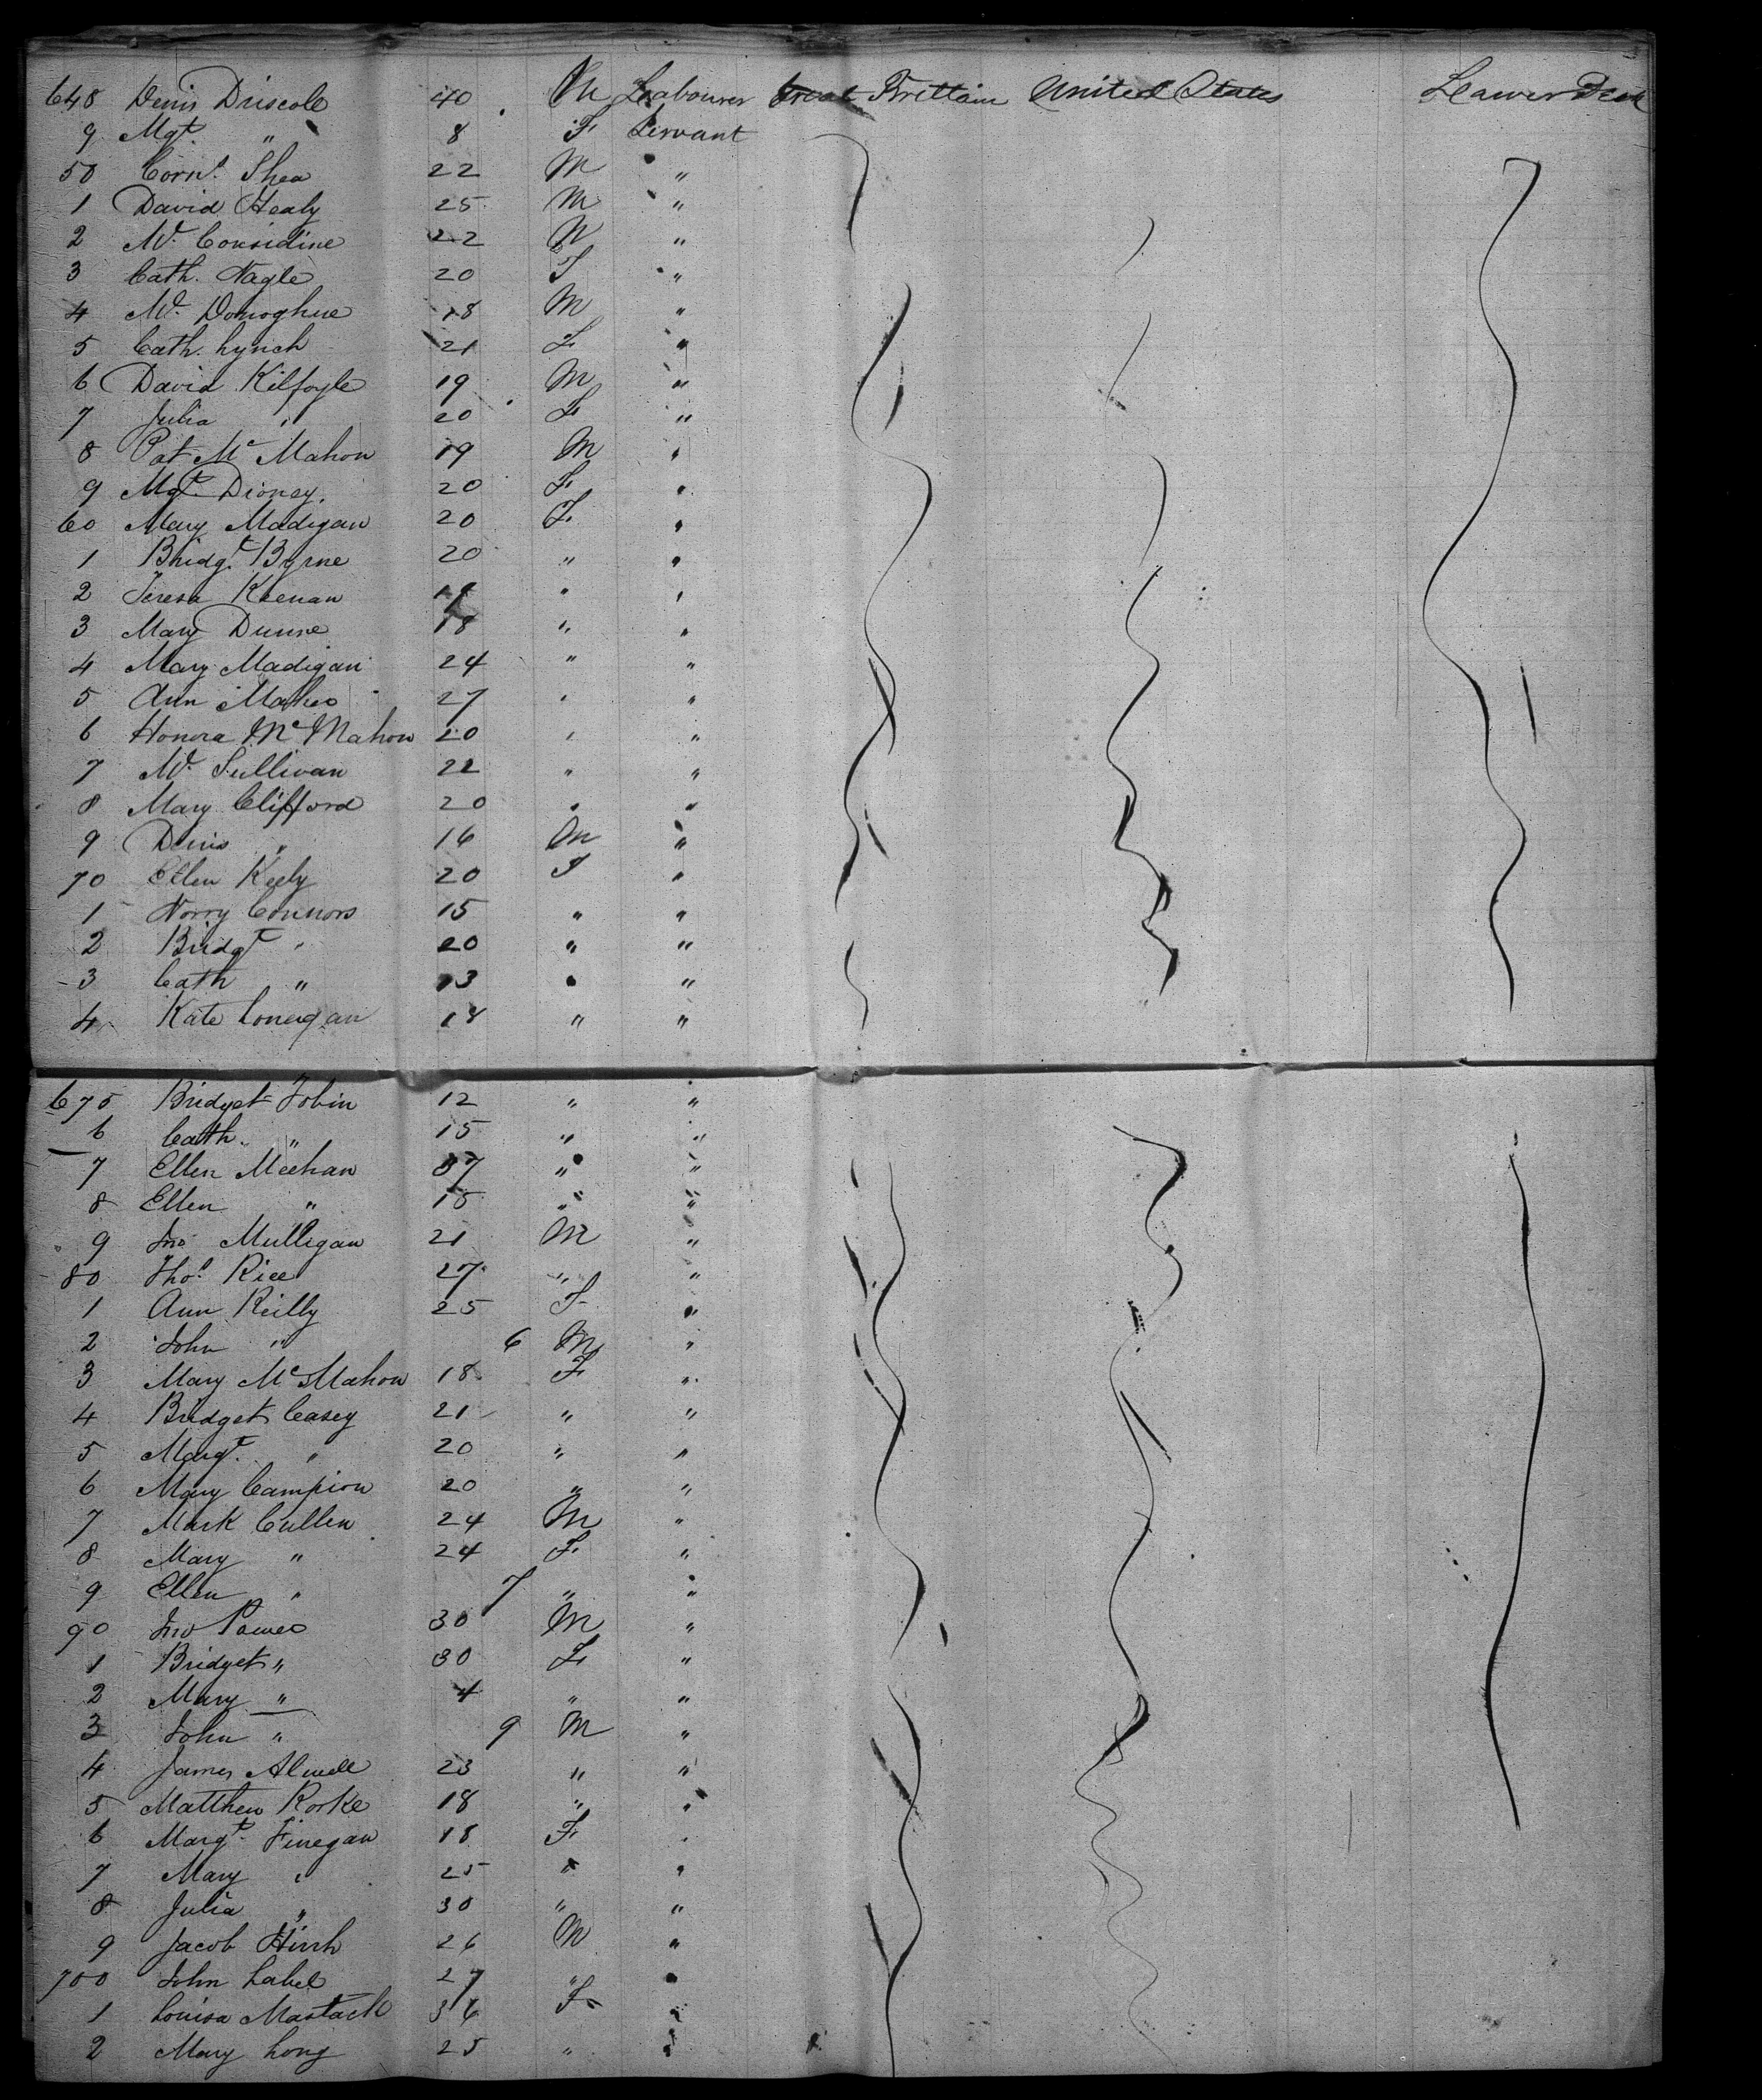 648 Denis Driscole 40 M Labourer Great Brittain United States Lawer Deck
9 Mgt. " 8 F Servant
50 Corns. Shea 22 M "
1 David Healy 25 M "
2 Ml. Considine 22 M "
3 Cath. Nagle 20 F "
4 Ml. Donoghue 18 M "
5 Cath. Lynch 21 F "
6 David Kilfoyle 19 M "
7 Julia " 20 F "
8 Pat Mc Mahon 19 M "
9 Mgt. Dioney. 20 F "
60 Mary Madigan 20 F "
1 Bridgt. Byrne 20 " "
2 Teresa Keenan " "
3 Mary Dunne 18 " "
4 Mary Madigan 24 " "
5 Ann Maher 27 " "
6 Honora Mc Mahon 20 " "
7 Ml. Sullivan 22 " "
8 Mary Clifford 20 " "
9 Denis " 16 M "
70 Ellen Keely 20 F "
1 Norry Connors 15 " "
2 Bridgt " 20 " "
3 Cath " 13 " "
4 Kate Lonergan 18 " "
675 Bridget Tobin 12 " "
6 Cath. " 15 " "
7 Ellen Meehan 37 " "
8 Ellen " 15 " "
9 Jno Mulligan 21 M "
80 Thos. Rice 27 " "
1 Ann Reilly 25 F "
2 John " 6 M "
3 Mary McMahon 18 F "
4 Bridget Casey 21 " "
5 Margt. " 20 " "
6 Mary Campion 20 " "
7 Mark Cullen 24 M "
8 Mary " 24 F "
9 Ellen " 7 " "
90 Jno Power 30 M "
1 Bridget " 30 F "
2 Mary " 4 " "
3 John " 9 M "
4 James Alwell 23 " "
5 Matthew Rorke 18 " "
6 Margt. Finegan 18 F "
7 Mary " 25 " "
8 Julia " 30 " "
9 Jacob Hirsh 26 M "
700 John Label 27 " "
1 Louisa Mastach 36 F "
2 Mary Long 25 " "